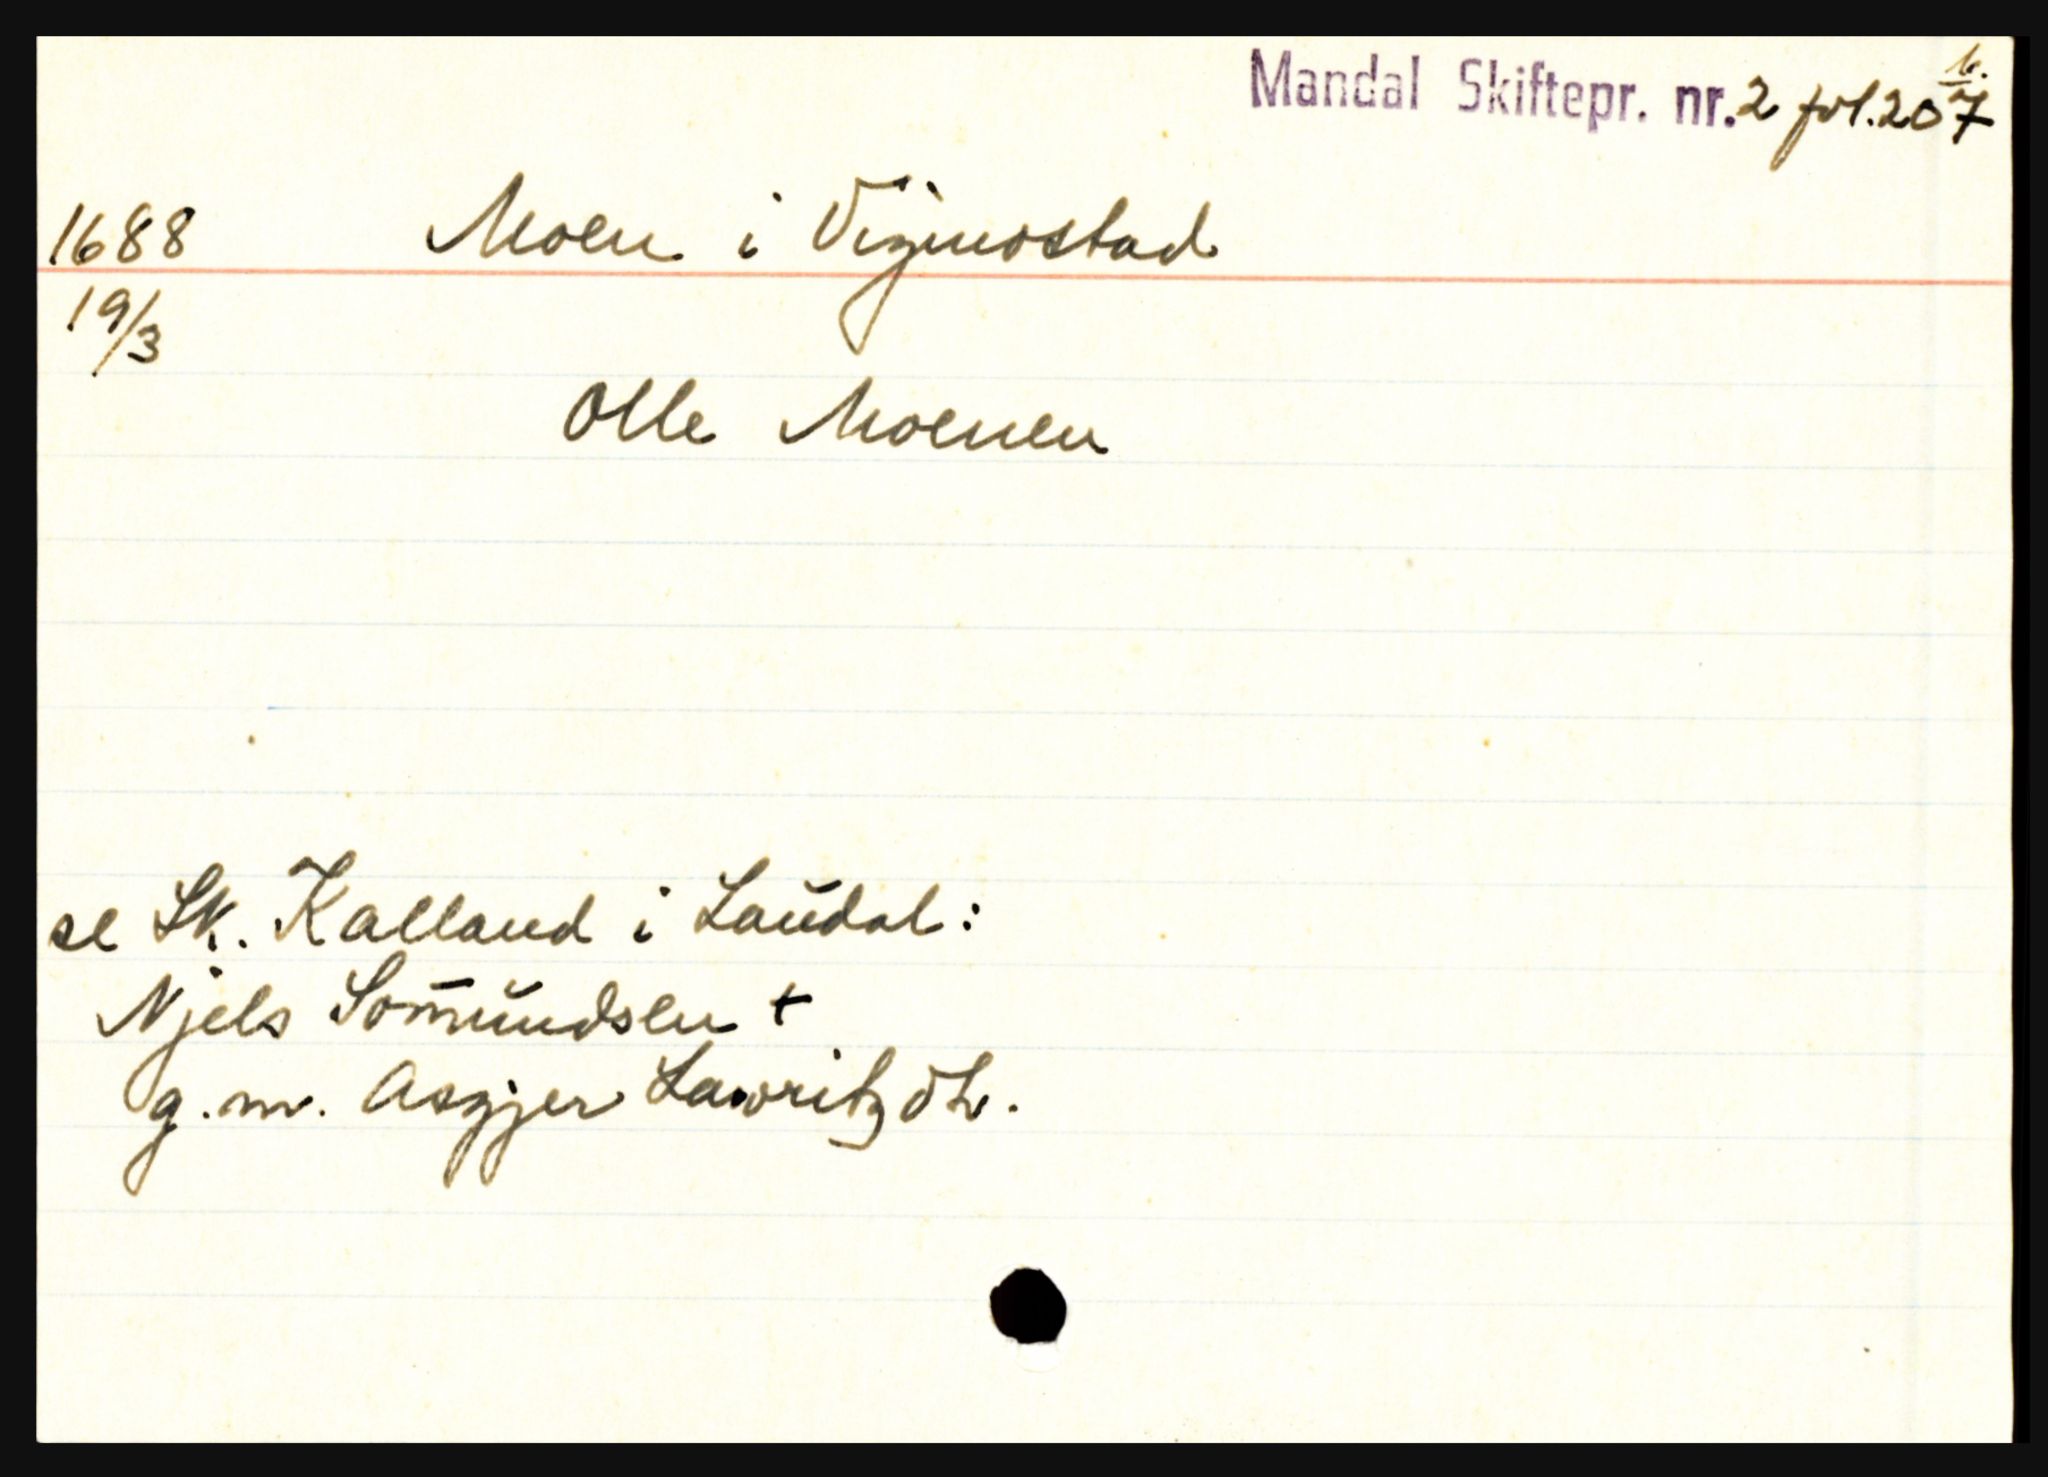 Mandal Skiftepr. nr. 2 fol. 207 b.
1688 Moen i Vigmostad
19/3
Olle Moenen
se Sk. Kalland i Laŭdal:
Njels Som̄ŭndsen +
g. m. Asgjer Lawritzdtr.